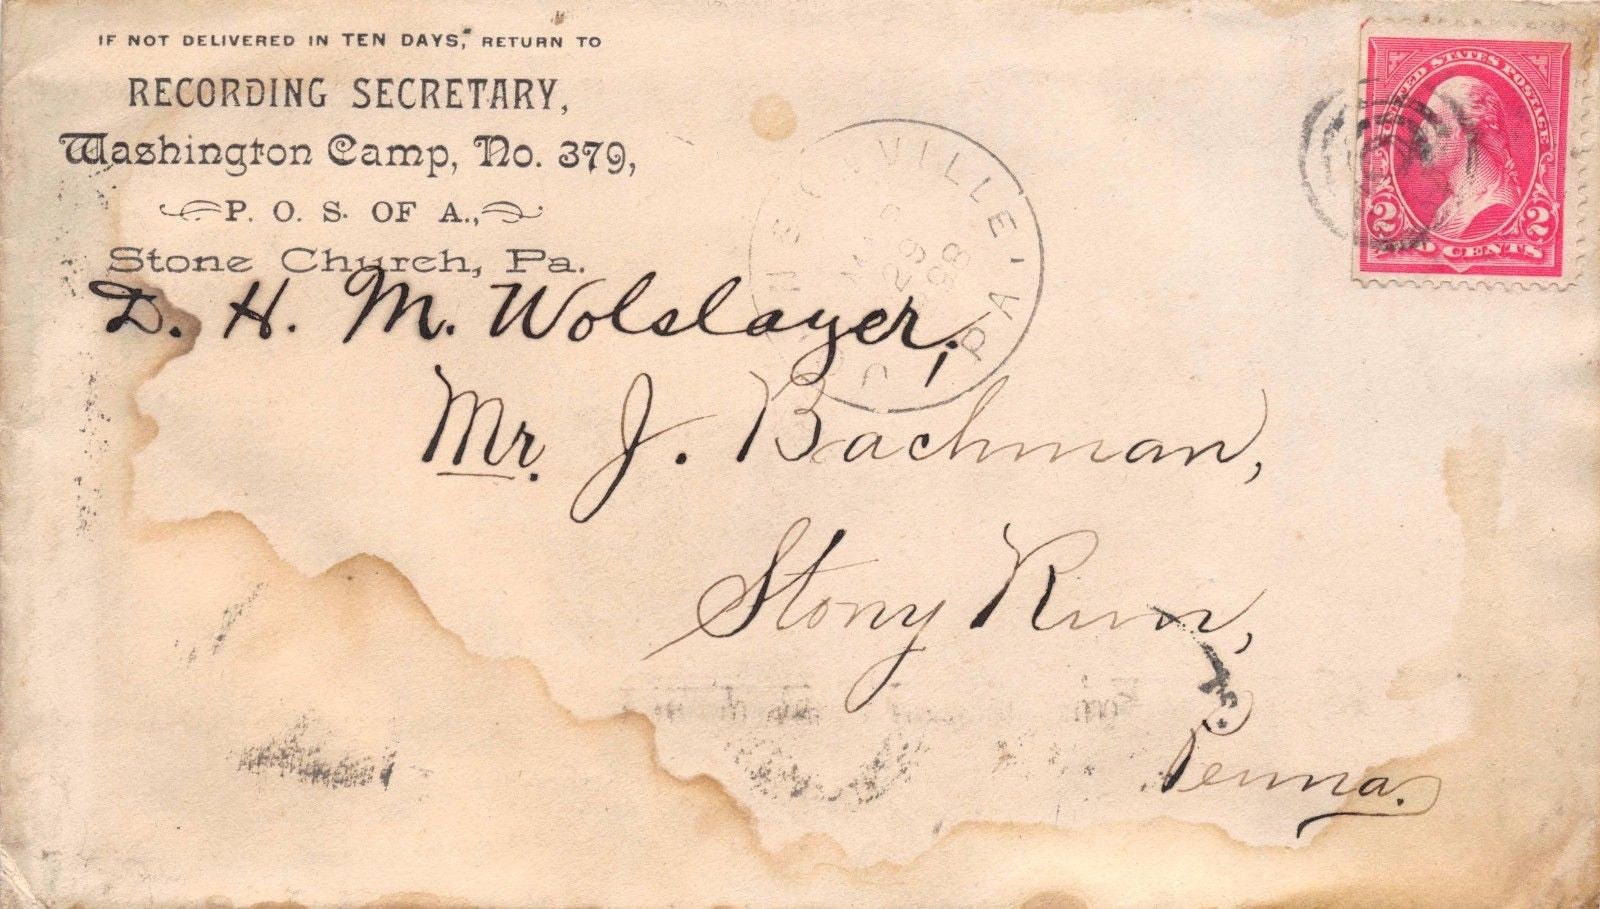 IF NOT DELIVERED IN TEN DAYS, RETURN TO
RECORDING SECRETARY,
Washington Camp, No. 379,
P. O. S. OF A.,
Stone Church, Pa.
D. H. M. Wolslayer,
Mr. J. Bachman,
Stony Run,
Penna.
VILLE, PA
29
98
UNITED STATES POSTAGE
2 2
CENTS